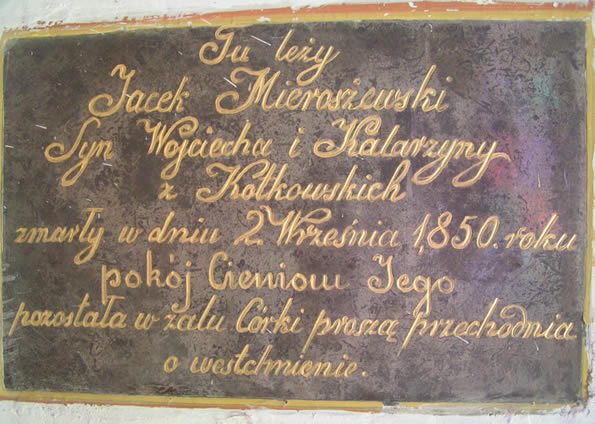 Tu leży
Jacek Mieroszewski
Syn Wojciecha i Katarzyny
z Kotkowskich
zmarły w dniu 2. Września 1,850. roku
pokój Cieniom Jego
pozostała w żalu Córki proszą przechodnia
o westchmienie.